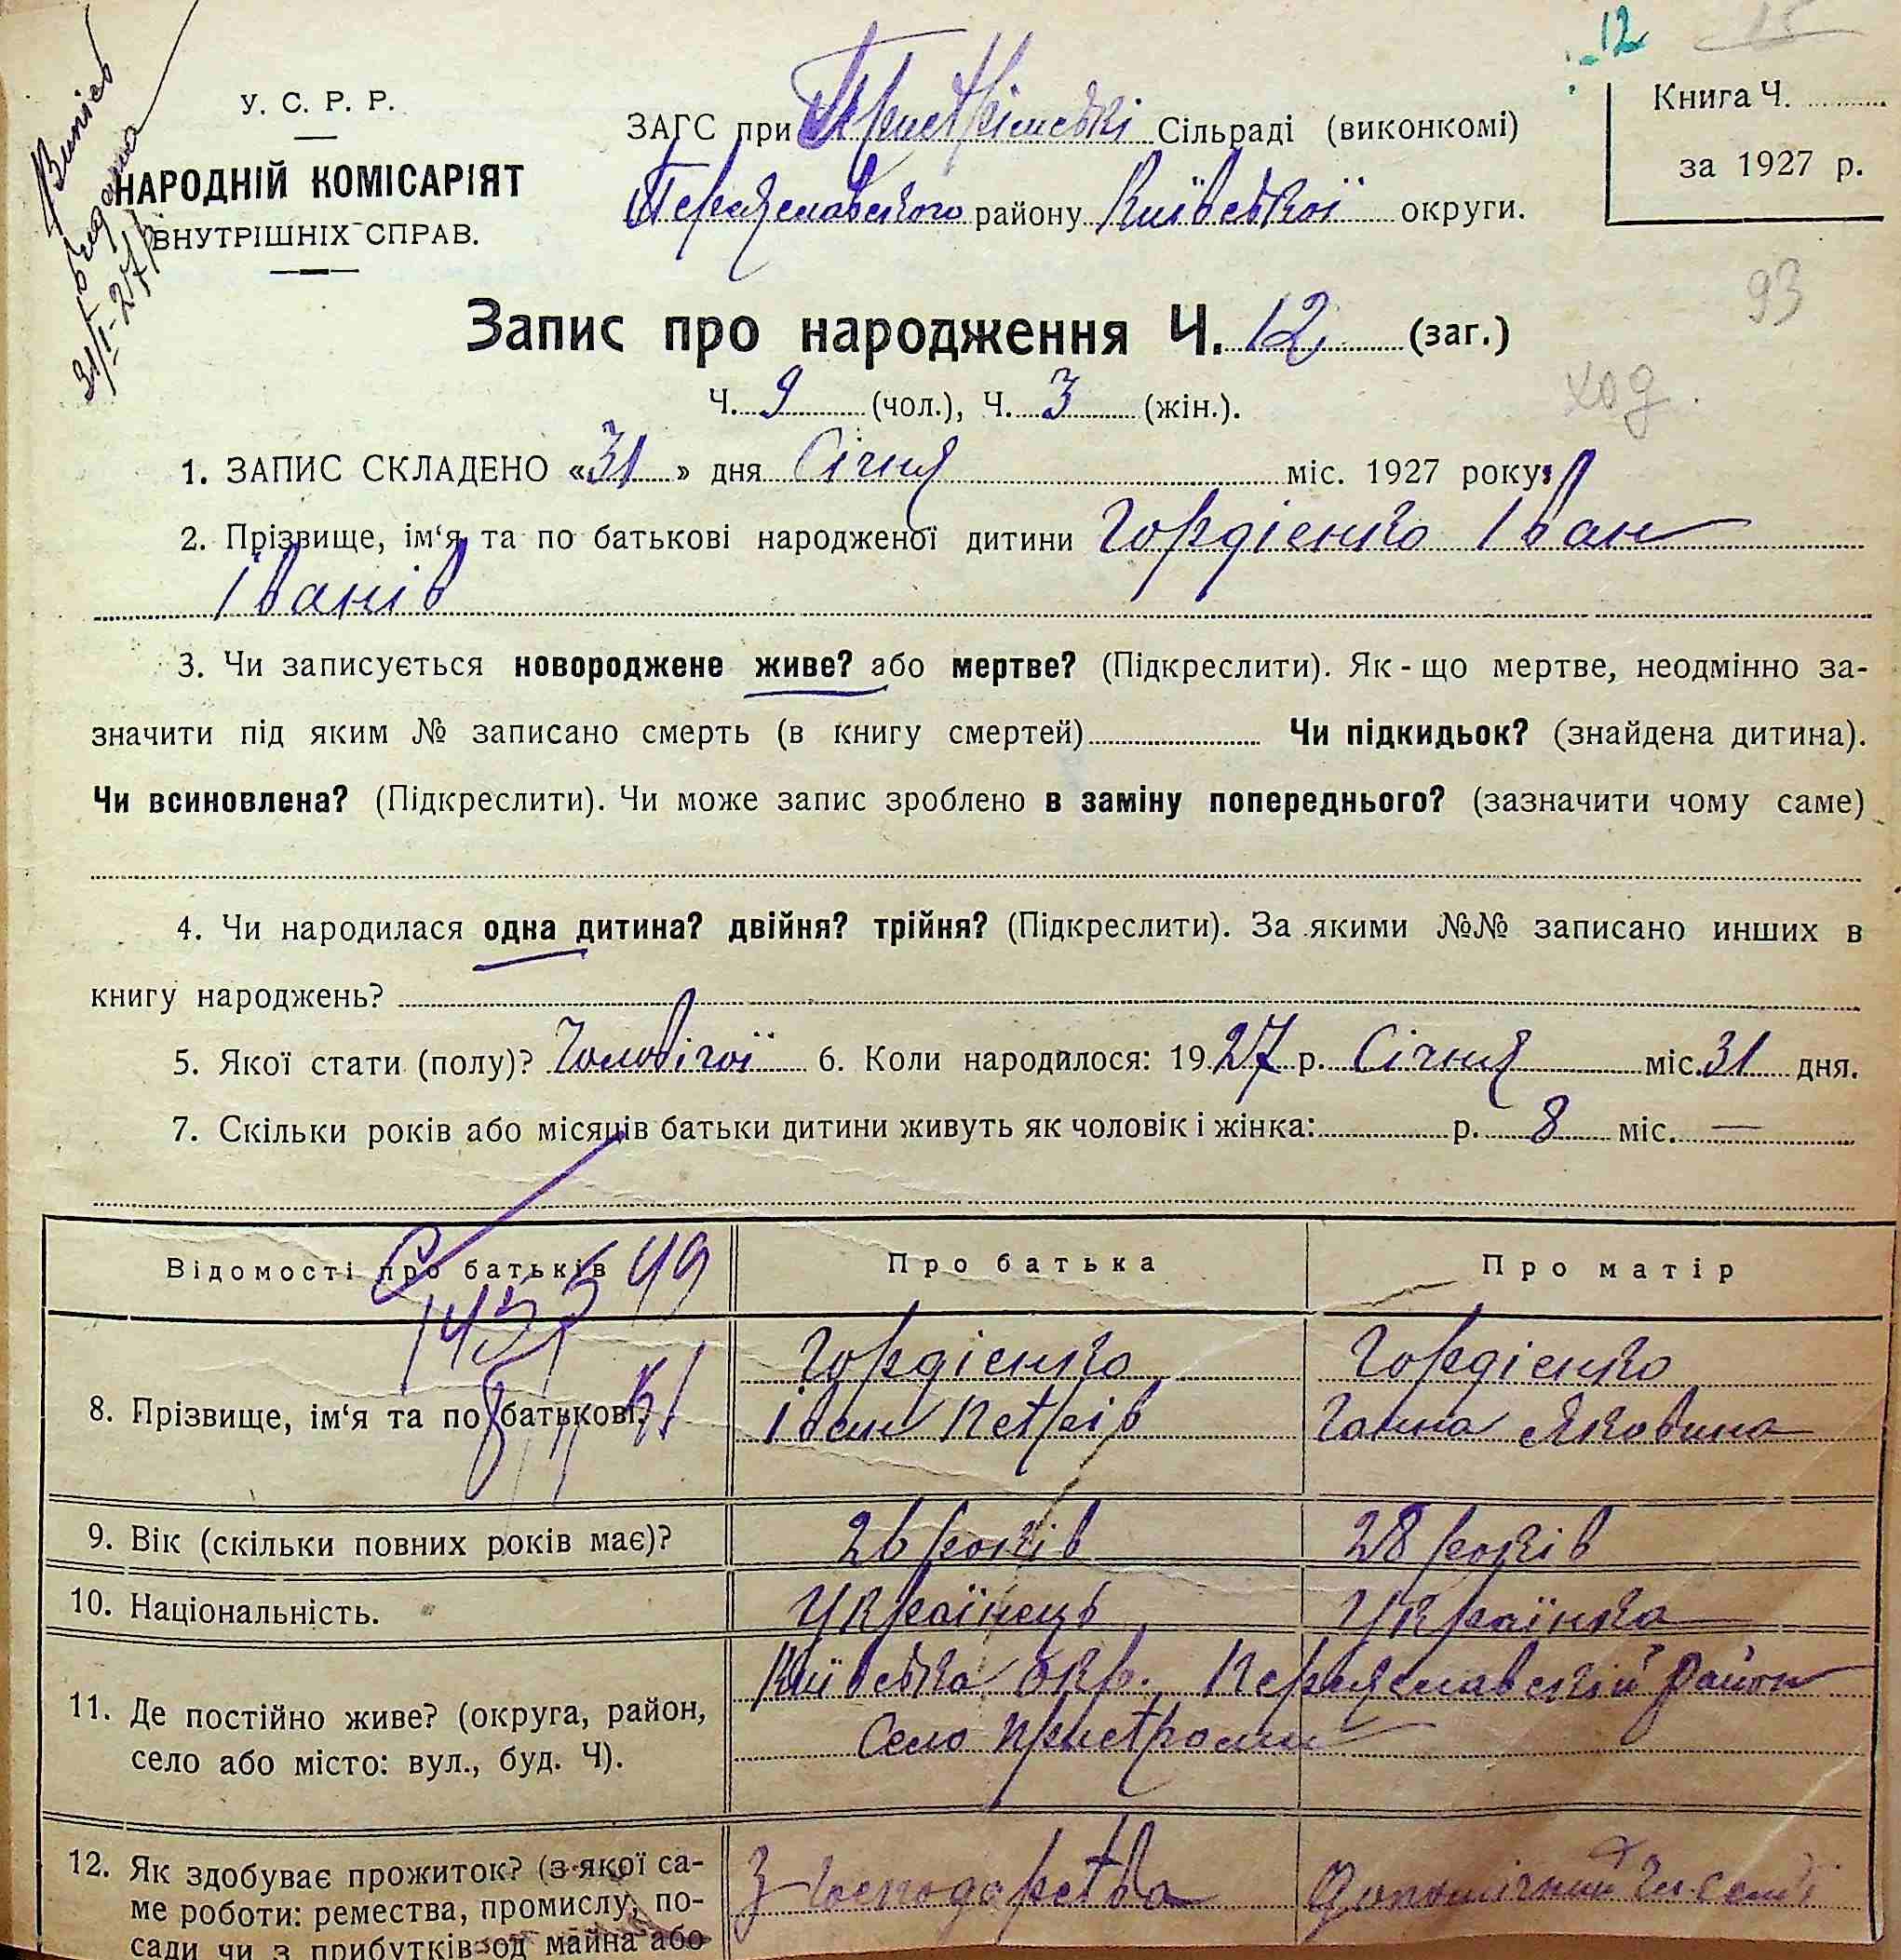 12 15
Випись
видана
31/I-27 р.
У. С. Р. Р.
НАРОДНІЙ КОМІСАРІЯТ
ВНУТРІШНІХ СПРАВ.
ЗАГС при Пристрімські Сільраді (виконкомі)
Переяславського району Київської округи.
Книга Ч. ..........
за 1927 р.
93
Запис про народження Ч. 12 (заг.)
Ч. 9 (чол.), Ч. 3 (жін.).
ход.
1. ЗАПИС СКЛАДЕНО «31» дня Січня міс. 1927 року.
2. Прізвище, ім‘я та по батькові народженої дитини Гордієнко Іван
Іванів
3. Чи записується новороджене живе? або мертве? (Підкреслити). Як-що мертве, неодмінно за-
значити під яким № записано смерть (в книгу смертей) .......... Чи підкидьок? (знайдена дитина).
Чи всиновлена? (Підкреслити). Чи може запис зроблено в заміну попереднього? (зазначити чому саме)
4. Чи народилася одна дитина? двійня? трійня? (Підкреслити). За якими №№ записано инших в
книгу народжень?
5. Якої стати (полу)? Чоловічої 6. Коли народилося: 1927 р. Січня міс. 31 дня.
7. Скільки років або місяців батьки дитини живуть як чоловік і жінка: .......... р. 8 міс. —
Відомості про батьків Про батька Про матір
49
8. Прізвище, ім‘я та по батькові. Гордієнко Гордієнко
Іван Петрів Ганна Яковина
9. Вік (скільки повних років має)? 26 років 28 років
10. Національність. Українець Українка
11. Де постійно живе? (округа, район,
село або місто: вул., буд. Ч).
Київська окр. Переяславській район
Село Пристроми
12. Як здобуває прожиток? (з якої са-
ме роботи: ремества, промислу, по-
сади чи з прибутків од майна або
З господарства